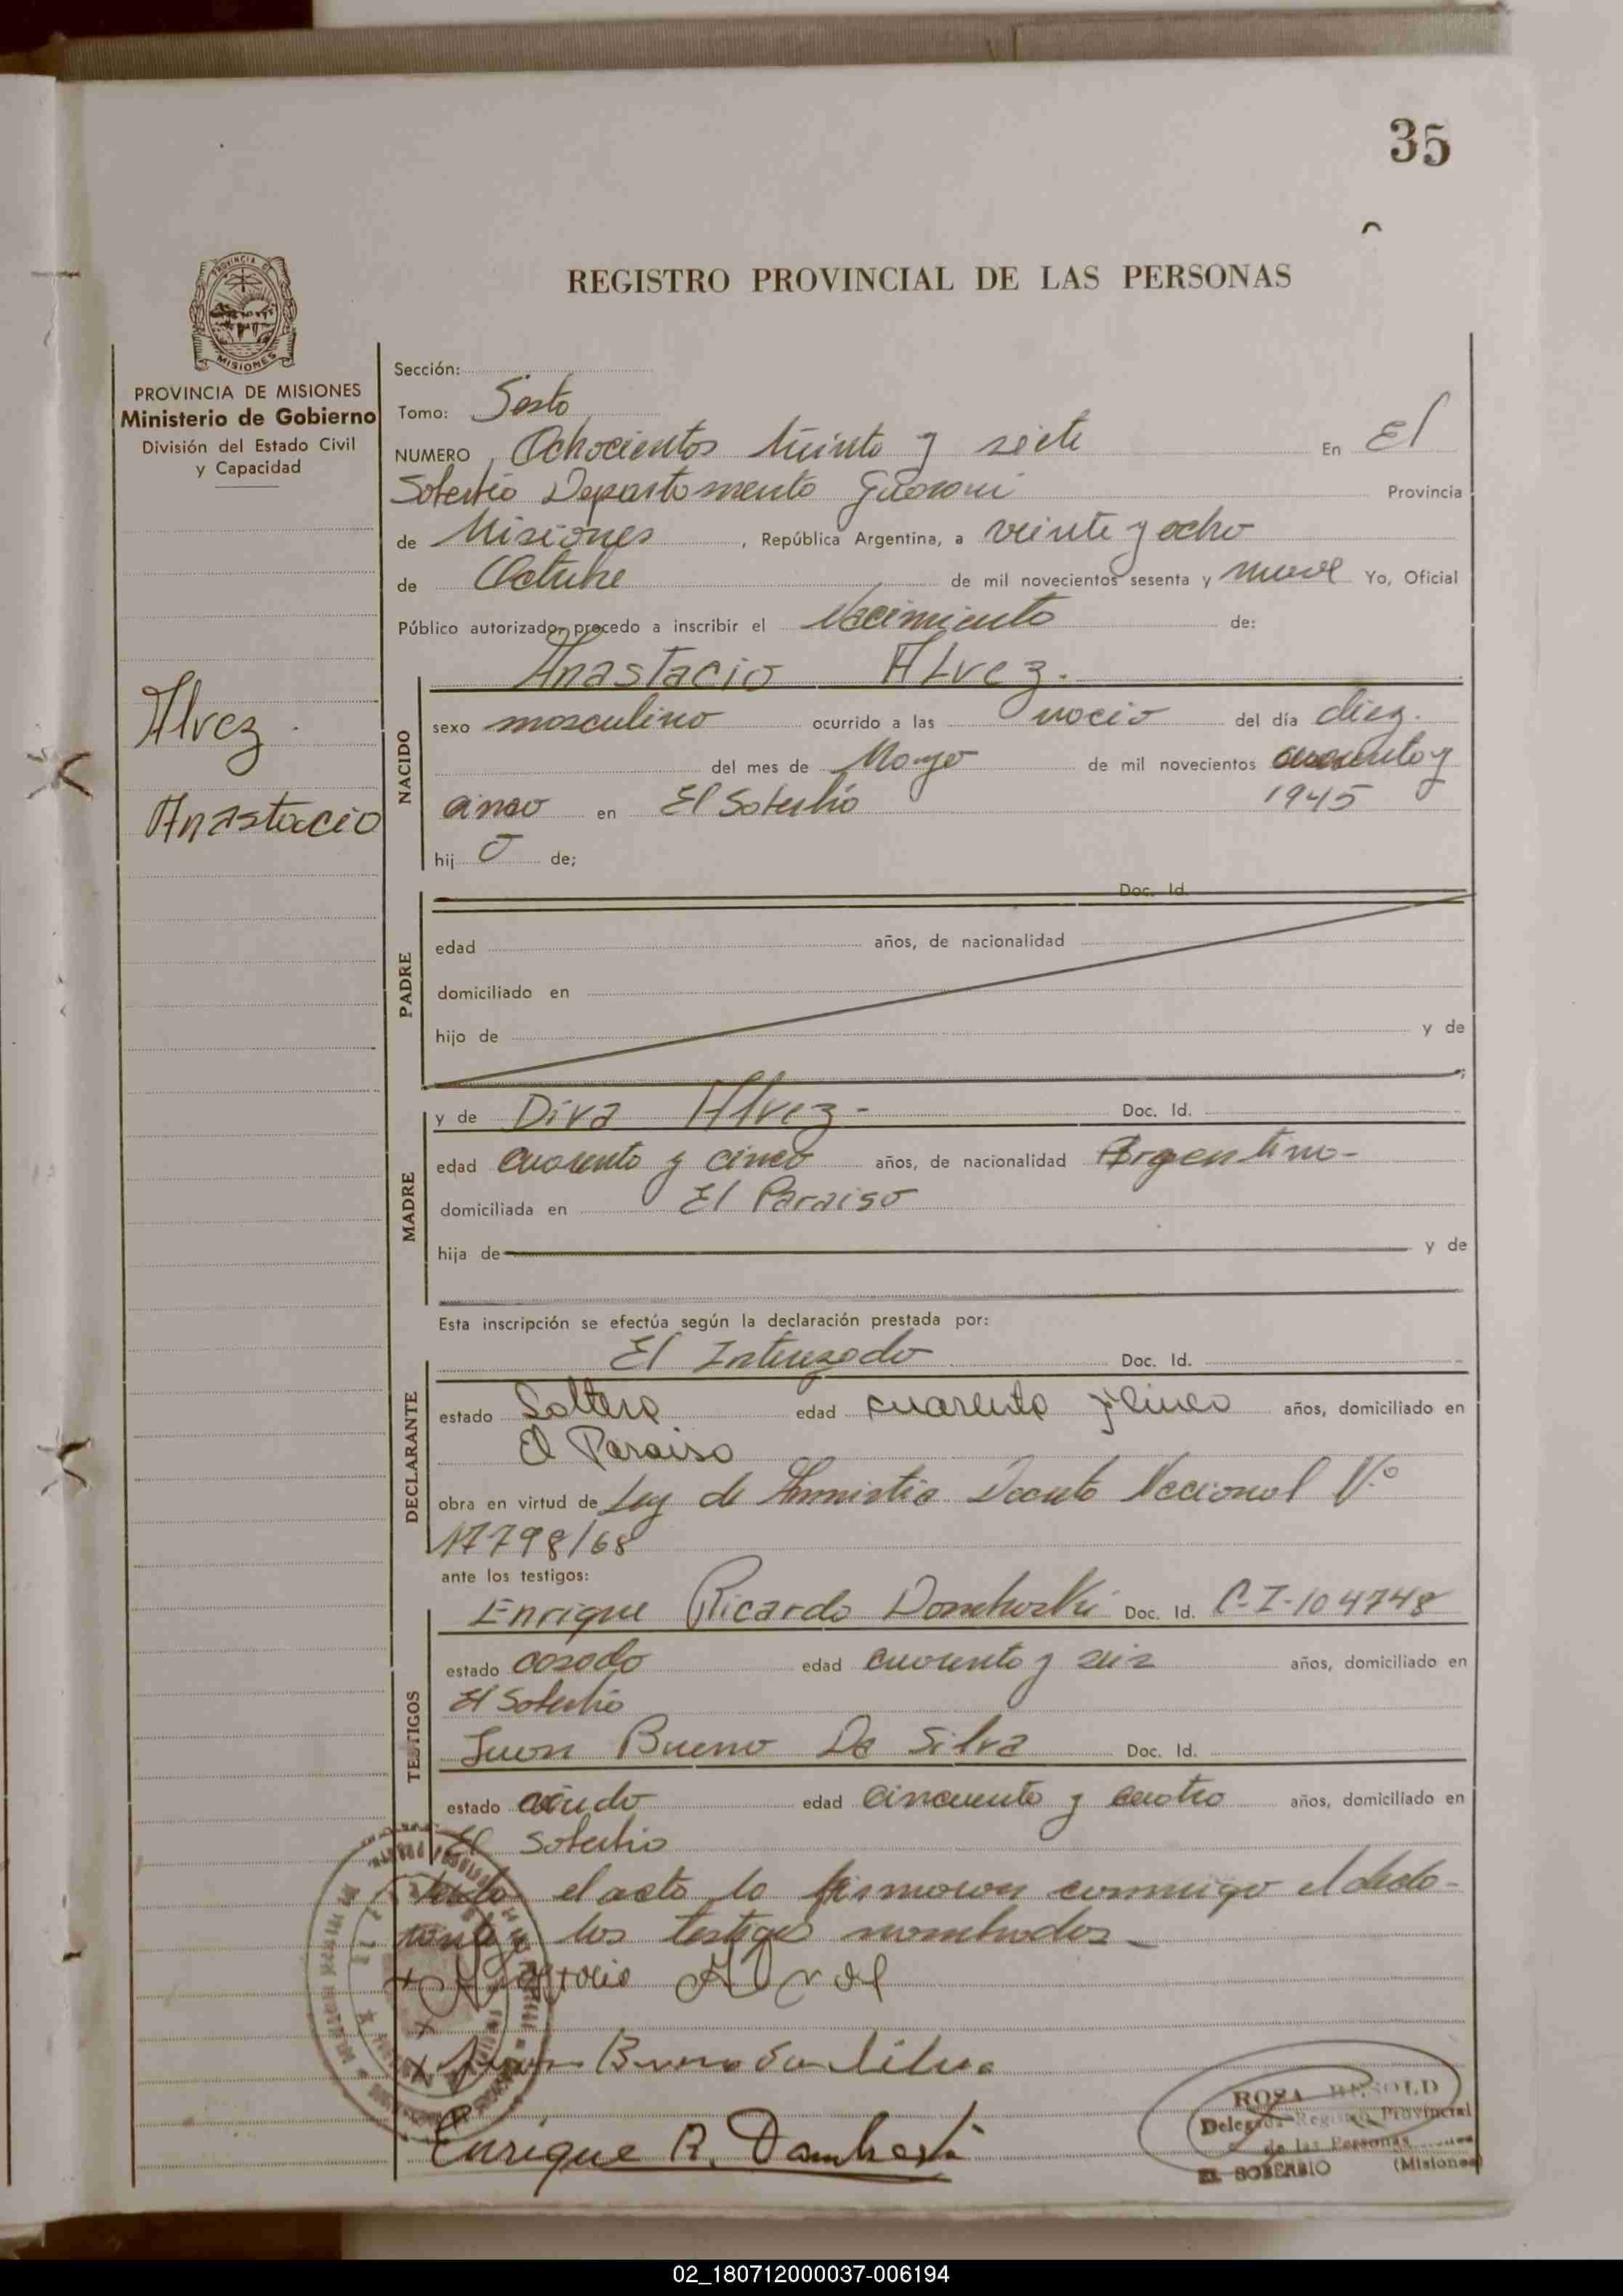 35
REGISTRO PROVINCIAL DE LAS PERSONAS
PROVINCIA DE
MISIONES
PROVINCIA DE MISIONES
Ministerio de Gobierno
División del Estado Civil
y Capacidad
Alvez
Anastacio
Sección:
Tomo: Sesto
NUMERO Ochocientos treinta y siete En El
Soberbio Departamento Guarani Provincia
de Misiones, República Argentina, a veinte y ocho
de Octubre de mil novecientos sesenta y nueve Yo, Oficial
Público autorizado, procedo a inscribir el Nacimiento de:
Anastacio Alvez.
NACIDO
sexo masculino ocurrido a las nacio del día diez.
del mes de Mayo de mil novecientos cuarenta y
cinco en El Soberbio 1945
hij o de;
PADRE
Doc. Id.
edad años, de nacionalidad
domiciliado en
hijo de y de
MADRE
y de Diva Alvez - Doc. Id.
edad cuarenta y cinco años, de nacionalidad Argentina-
domiciliada en El Paraiso
hija de y de
Esta inscripción se efectúa según la declaración prestada por:
DECLARANTE
El Interezado Doc. Id.
estado Soltero edad cuarenta y cinco años, domiciliado en
El Paraiso
obra en virtud de Ley de Amnistia Decreto Nacional N°
17798/68
ante los testigos:
TESTIGOS
Enrique Ricardo Domborski Doc. Id. C-I-104748
estado casado edad cuarenta y seis años, domiciliado en
El Soberbio
Juan Bueno Da Silva Doc. Id.
estado viudo edad cincuenta y cuatro años, domiciliado en
El Soberbio
el acta la firmaron conmigo el decla-
rante y los testigos nombrados -
Enrique R.
ROSA
Delegada Registro Provincial
de las Personas
EL SOBERBIO (Misiones)
02_180712000037-006194